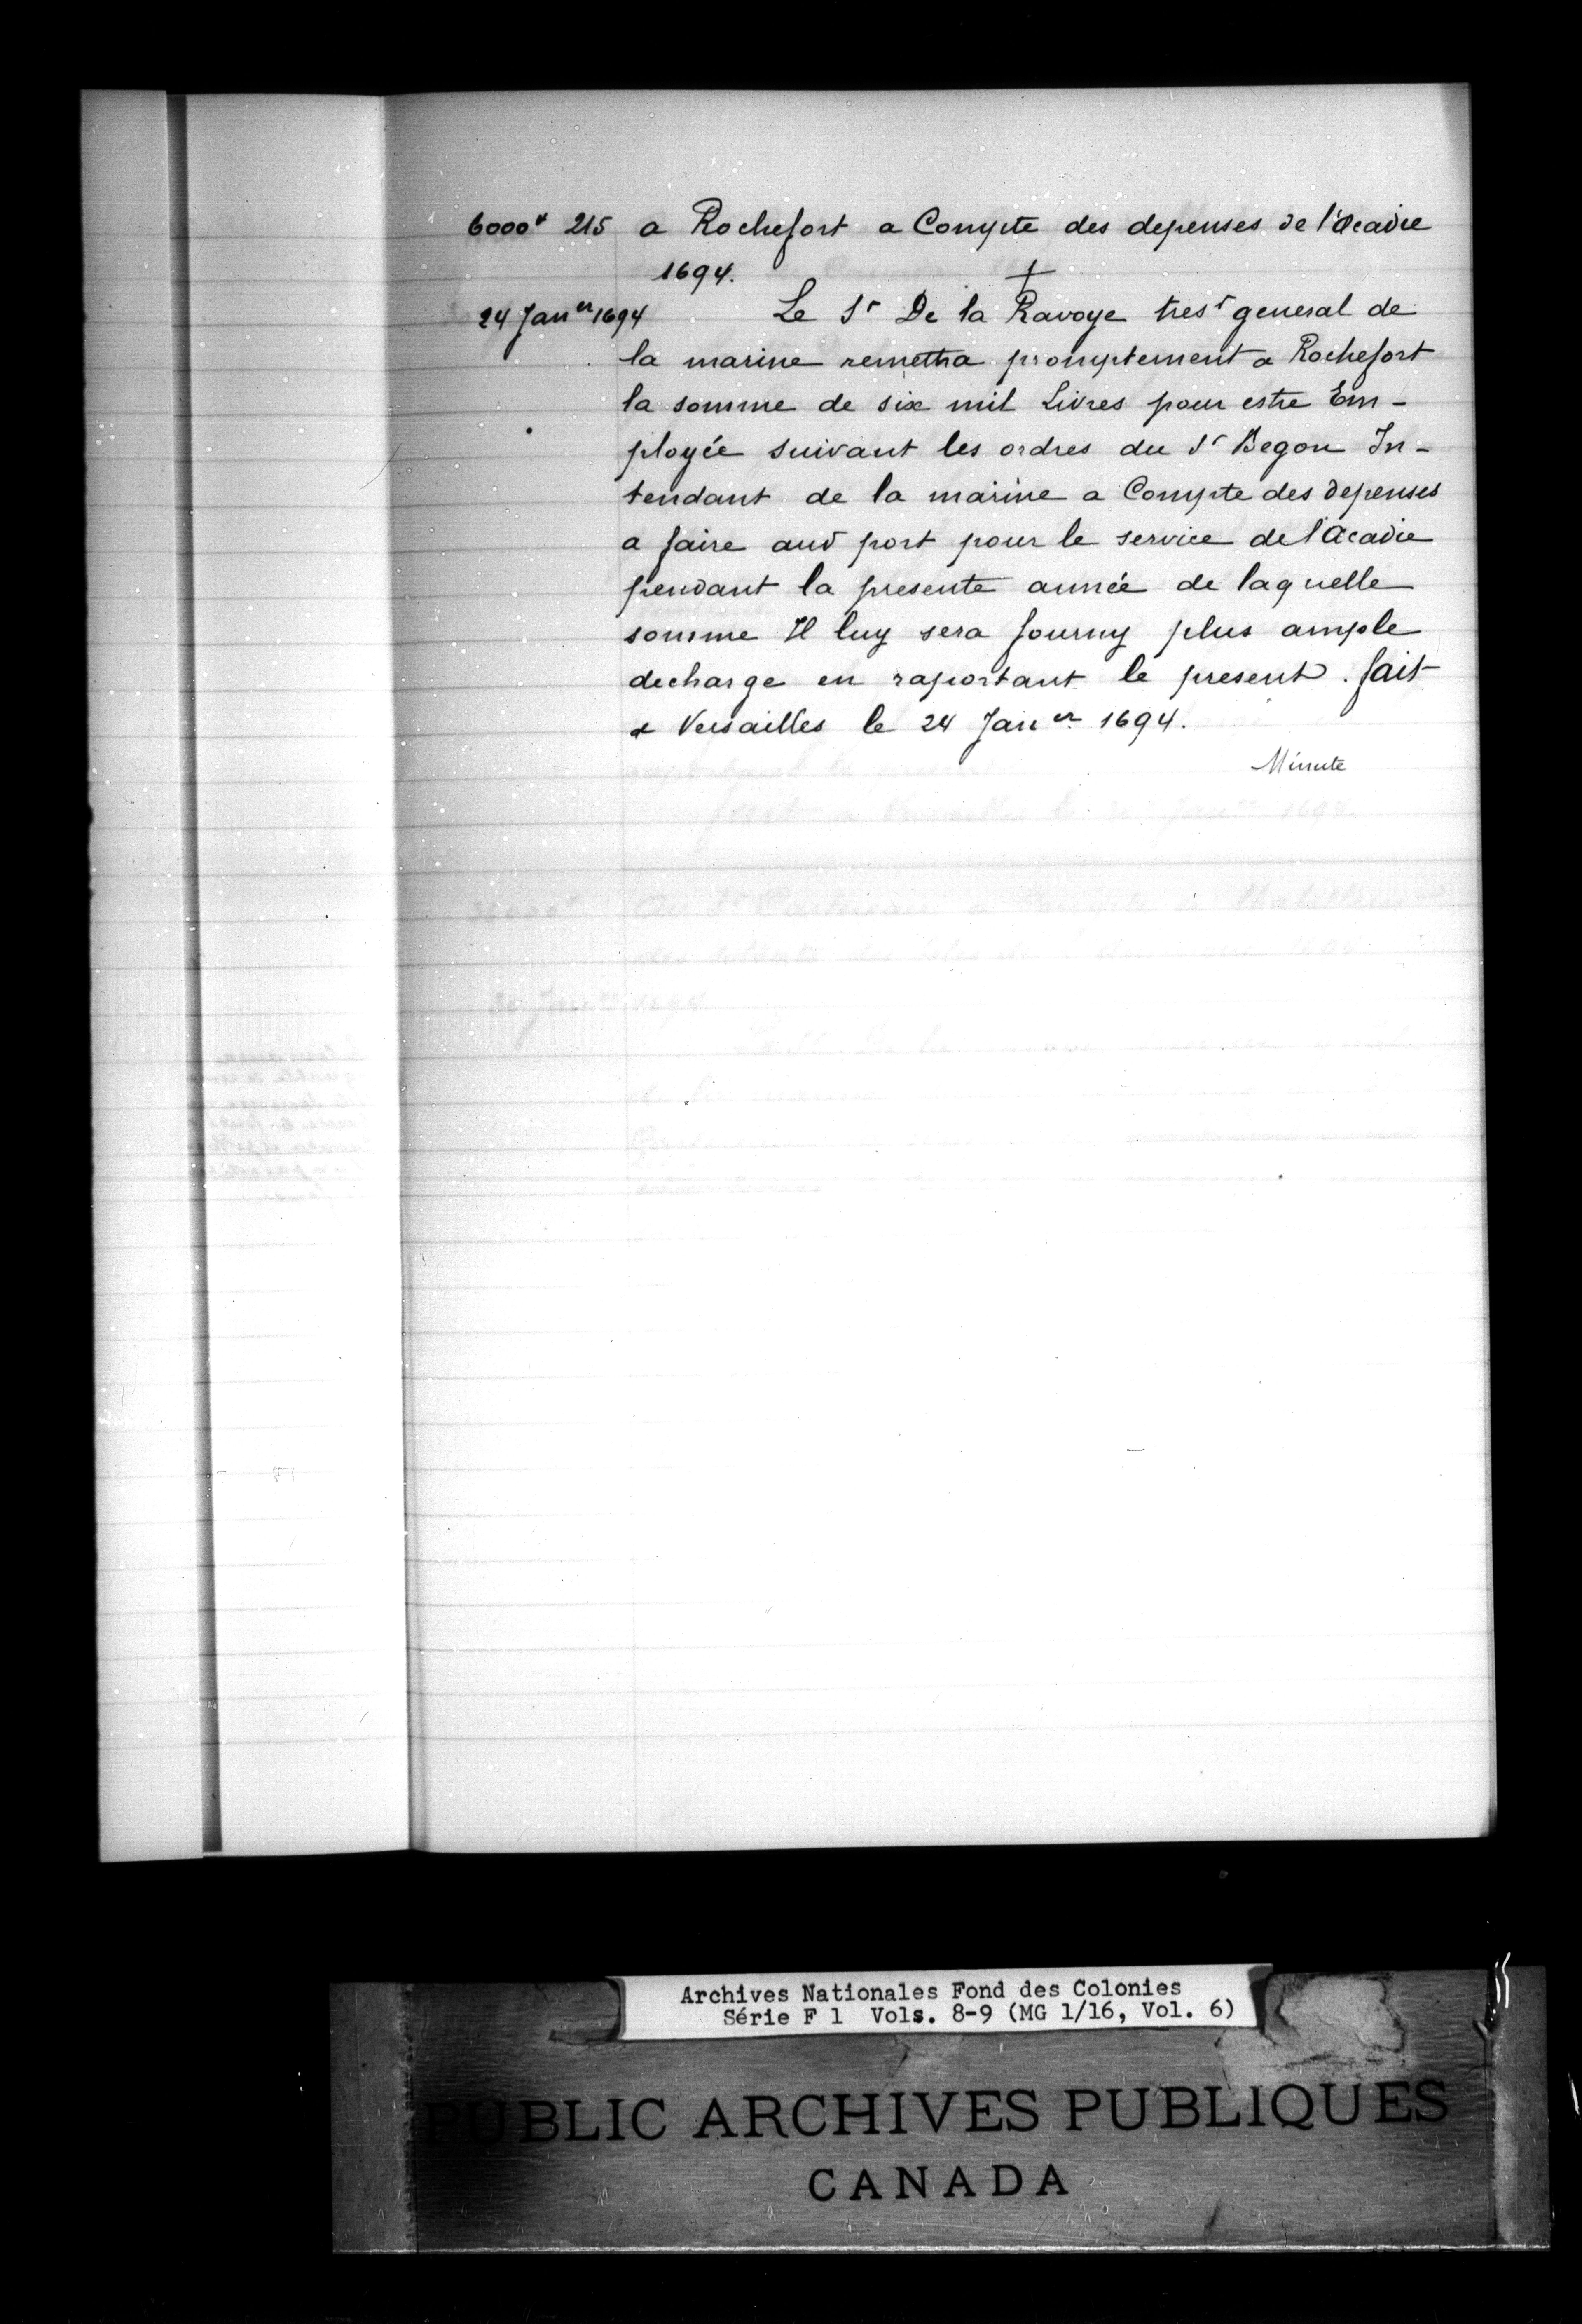 6000# 215 a Rochefort a Compte des depenses de l'Acadie
1694.
24 Janer 1694 Le Sr De la Ravoye tresr general de
la marine remettra promptement a Rochefort
la somme de six mil Livres pour estre Em-
ployée suivant les ordres du Sr Begon In-
tendant de la marine a Compte des depenses
a faire aud port pour le service de l'Acadie
pendant la presente année de laquelle
somme Il luy sera fourny plus ample
decharge en raportant le present. fait
a Versailles le 24 Janer 1694.
Minute
Archives Nationales Fond des Colonies
Série F 1 Vols. 8-9 (MG 1/16, Vol. 6)
PUBLIC ARCHIVES PUBLIQUES
CANADA